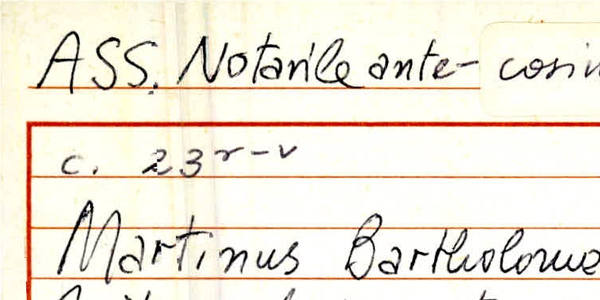 ASS. Notarile ante-cosin
c. 23 r-v
Martinus Bartholome